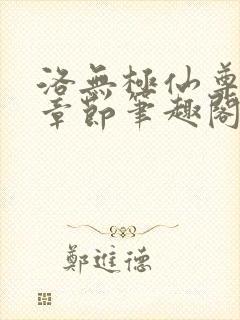 洛無極仙尊
章節筆趣閣
鄭進德